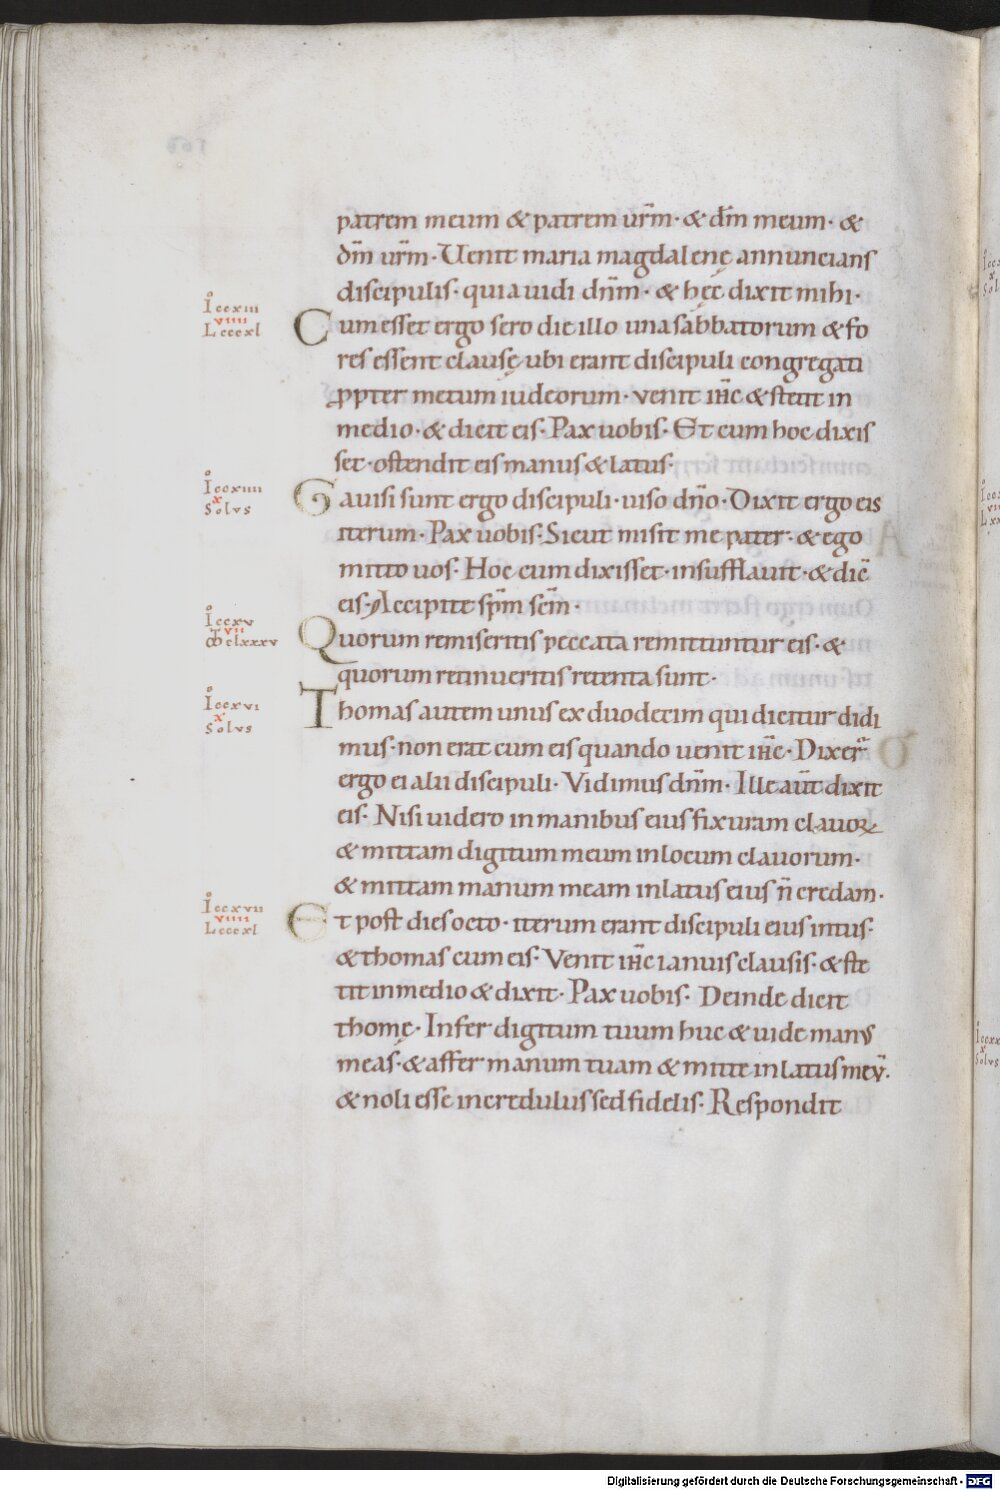 patrem meum & patrem ur̄m · & dm̄ meum · &
dm̄ ur̄m · Uenit maria magdalenę annuncians
discipulis · quia uidi dn̄m · & hęc dixit mihi ·
Io ccxiii
viiii
L cccxl
Cum esset ergo sero die illo una sabbatorum & fo
res essent clausę ubi erant discipuli congregati
ꝓpter metum iudeorum · venit ih̄c & stetit in
medio · & dicit eis · Pax uobis · Et cum hoc dixis
set · ostendit eis manus & latus ·
Io ccxiiii
x
Solus
Gauisi sunt ergo discipuli · uiso dn̄o · Dixit ergo eis
iterum · Pax uobis · Sicut misit me pater · & ego
mitto uos · Hoc cum dixisset · insufflauit · & dic̄
eis · Accipite sp̄m sc̄m ·
Io ccxv
vii
clxxxv
Quorum remiseritis peccata remittuntur eis · &
quorum retinueritis retenta sunt ·
Io ccxvi
x
Solus
Thomas autem unus ex duodecim qui dicitur didi
mus · non erat cum eis quando uenit ih̄c · Dixer̄
ergo ei alii discipuli · Vidimus dn̄m · Ille aūt dixit
eis · Nisi uidero in manibus eius fixuram clauoꝝ
& mittam digitum meum in locum clauorum ·
& mittam manum meam in latus eius n̄ credam ·
Io ccxvii
viiii
L cccxl
Et post dies octo · iterum erant discipuli eius intus ·
& thomas cum eis · Venit ih̄c ianuis clausis · & ste
tit in medio & dixit · Pax uobis · Deinde dicit
thomę · Infer digitum tuum huc & uide manus
meas · & affer manum tuam & mitte in latus meū ·
& noli esse incredulus sed fidelis · Respondit
Digitalisierung gefördert durch die Deutsche Forschungsgemeinschaft - DFG